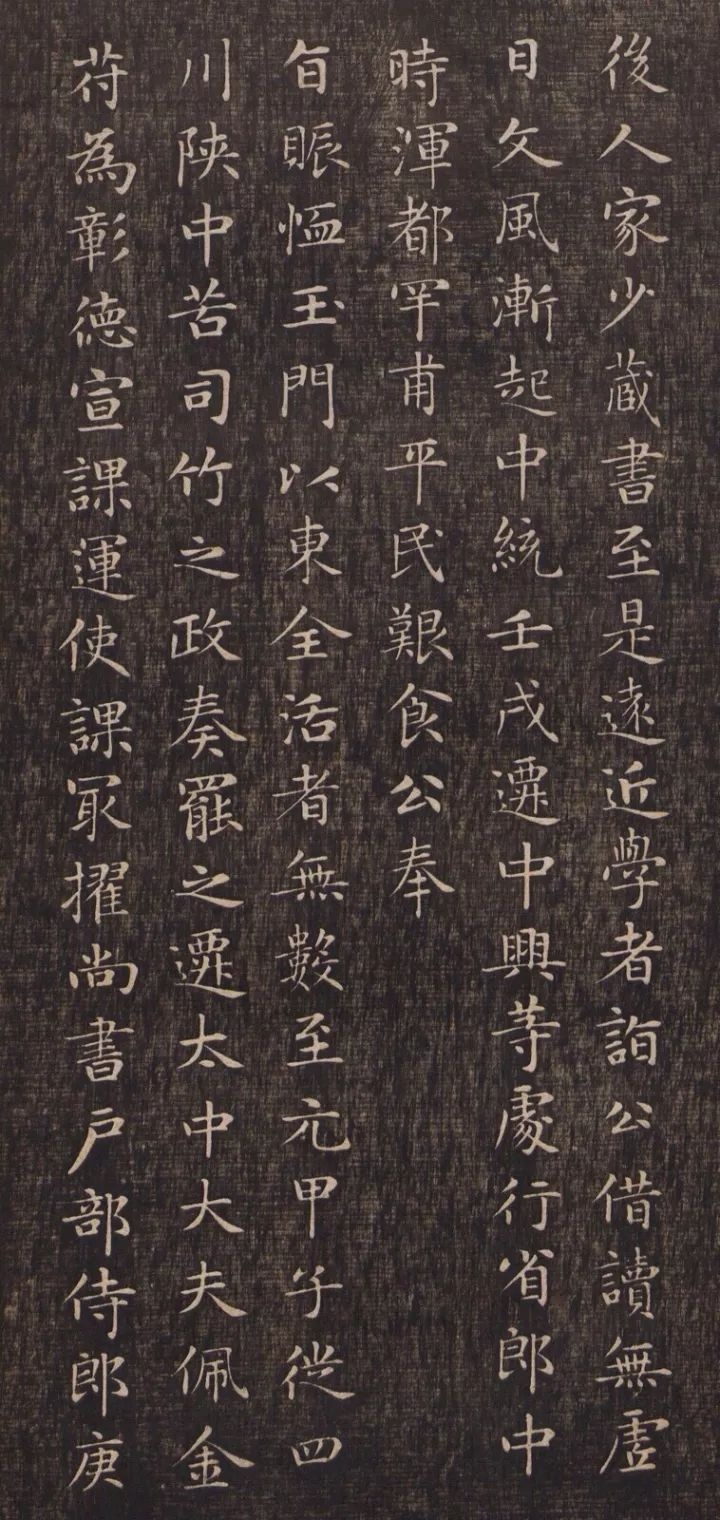 後人家少蔵書至是遠近學者詣公借讀無虚
日文風漸起中統壬戌遷中興等處行省郎中
時渾都罕甫平民艱食公奉
旨賑恤玉門以東全活者無數至元甲子從四
川陕中苦司竹之政奏罷之遷太中大夫佩金
苻為彰徳宣課運使課冣擢尚書戶部侍郎庚